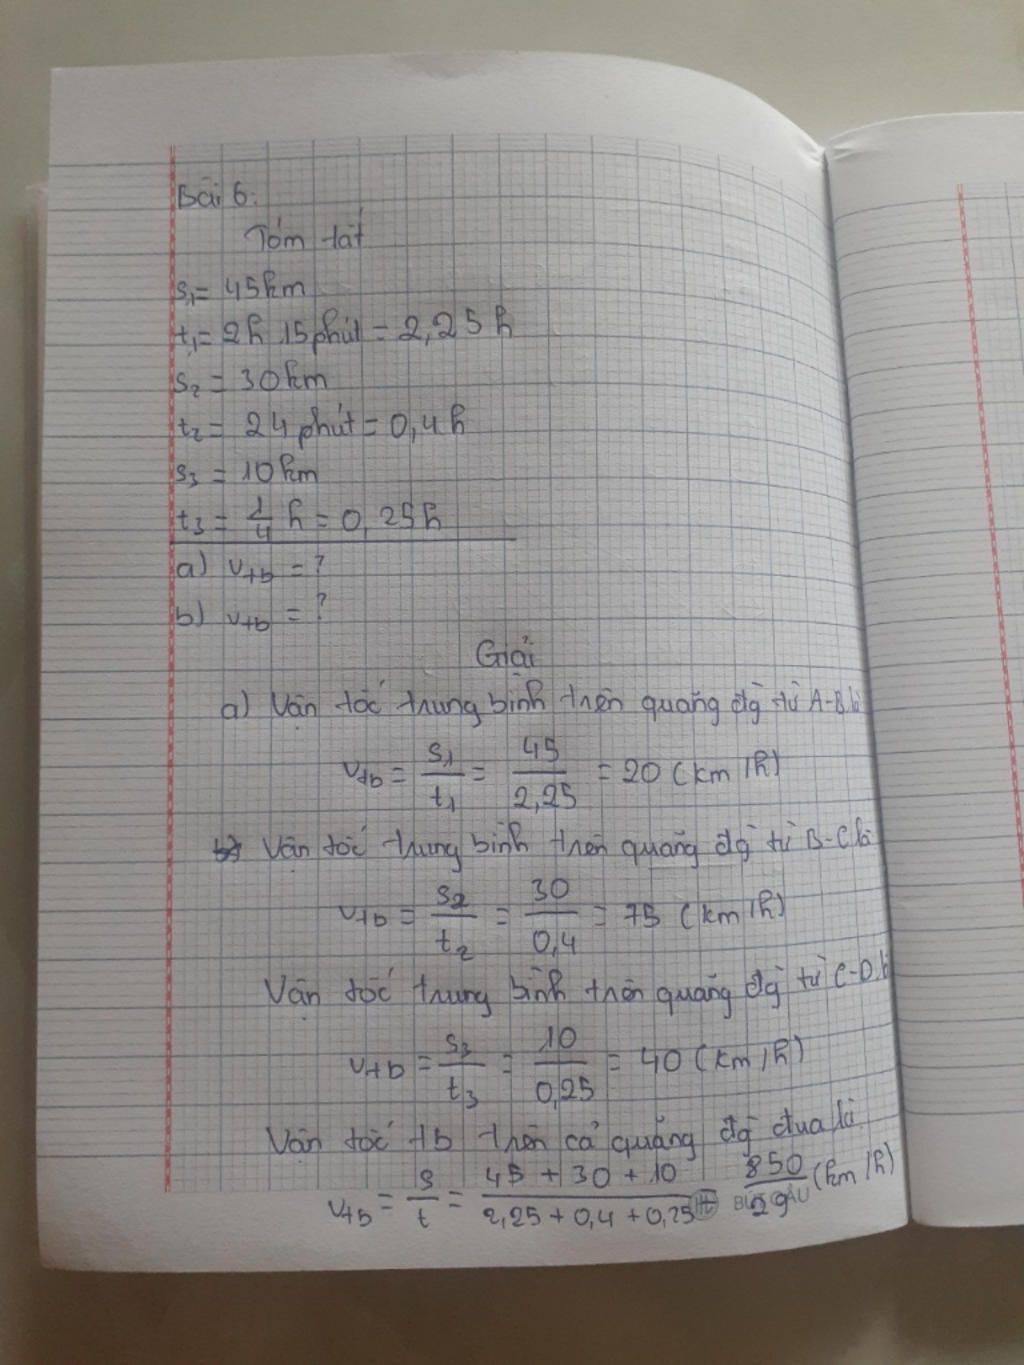 Bài 6:
Tóm tắt
s₁ = 45km
t₁ = 2h 15phút = 2,25h
s₂ = 30km
t₂ = 24phút = 0,4h
s₃ = 10km
t₃ = 1/4 h = 0,25h
a) vtb = ?
b) vtb = ?
Giải
a) Vận tốc trung bình trên quãng đg từ A-B là
vtb = s₁/t₁ = 45/2,25 = 20 (km/h)
Vận tốc trung bình trên quãng đg từ B-C là
vtb = s₂/t₂ = 30/0,4 = 75 (km/h)
Vận tốc trung bình trên quãng đg từ C-D là
vtb = s₃/t₃ = 10/0,25 = 40 (km/h)
Vận tốc tb trên cả quãng đg đua là
vtb = s/t = (45 + 30 + 10)/(2,25 + 0,4 + 0,25) 850/29 (km/h)